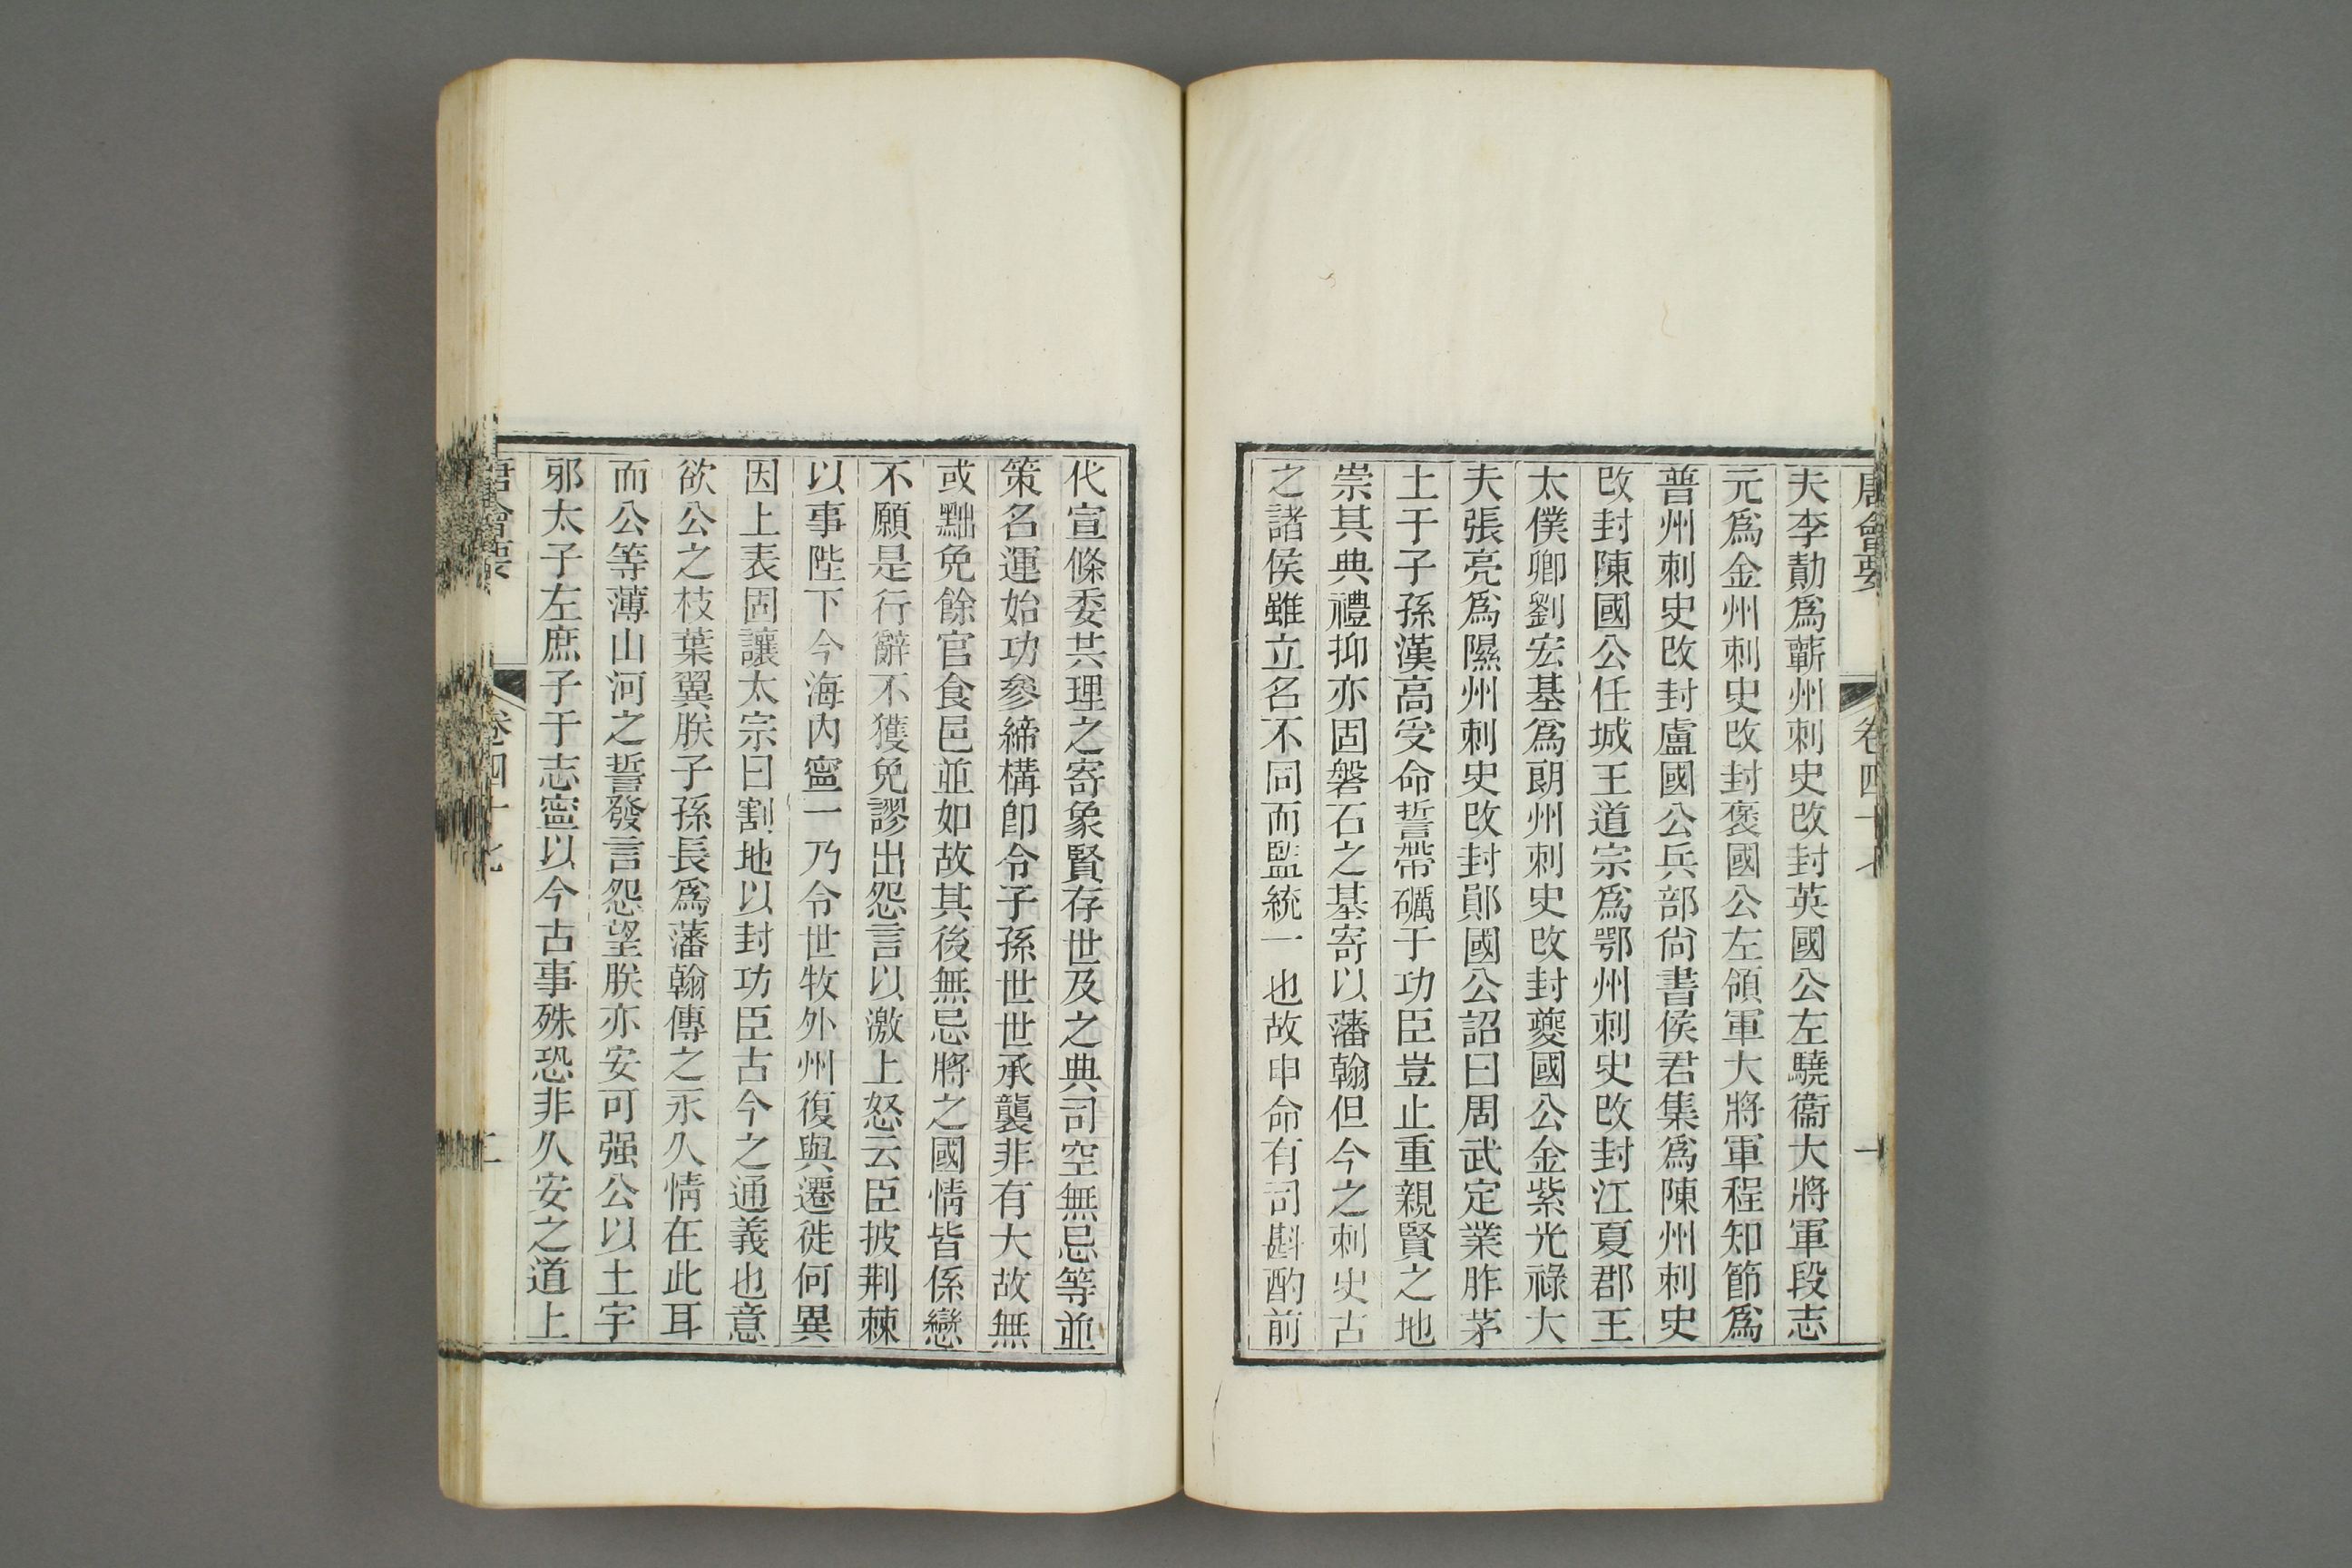 唐會要 卷四十七 一
夫李勣爲蘄州刺史改封英國公左驍衞大將軍段志
元爲金州刺史改封褒國公左領軍大將軍程知節爲
普州刺史改封盧國公兵部尙書侯君集爲陳州刺史
改封陳國公任城王道宗爲鄂州刺史改封江夏郡王
太僕卿劉宏基爲朗州刺史改封夔國公金紫光祿大
夫張亮爲隰州刺史改封鄖國公詔曰周武定業胙茅
土于子孫漢高受命誓帶礪于功臣豈止重親賢之地
崇其典禮抑亦固磐石之基寄以藩翰但今之刺史古
之諸侯雖立名不同而監統一也故申命有司斟酌前
代宣條委共理之寄象賢存世及之典司空無忌等並
策名運始功參締構卽令子孫世世承襲非有大故無
或黜免餘官食邑並如故其後無忌將之國情皆係戀
不願是行辭不獲免謬出怨言以激上怒云臣披荆棘
以事陛下今海內寧一乃令世牧外州復與遷徙何異
因上表固讓太宗曰割地以封功臣古今之通義也意
欲公之枝葉翼朕子孫長爲藩翰傳之永久情在此耳
而公等薄山河之誓發言怨望朕亦安可强公以土宇
邪太子左庶子于志寧以今古事殊恐非久安之道上
唐會要 卷四十七 二